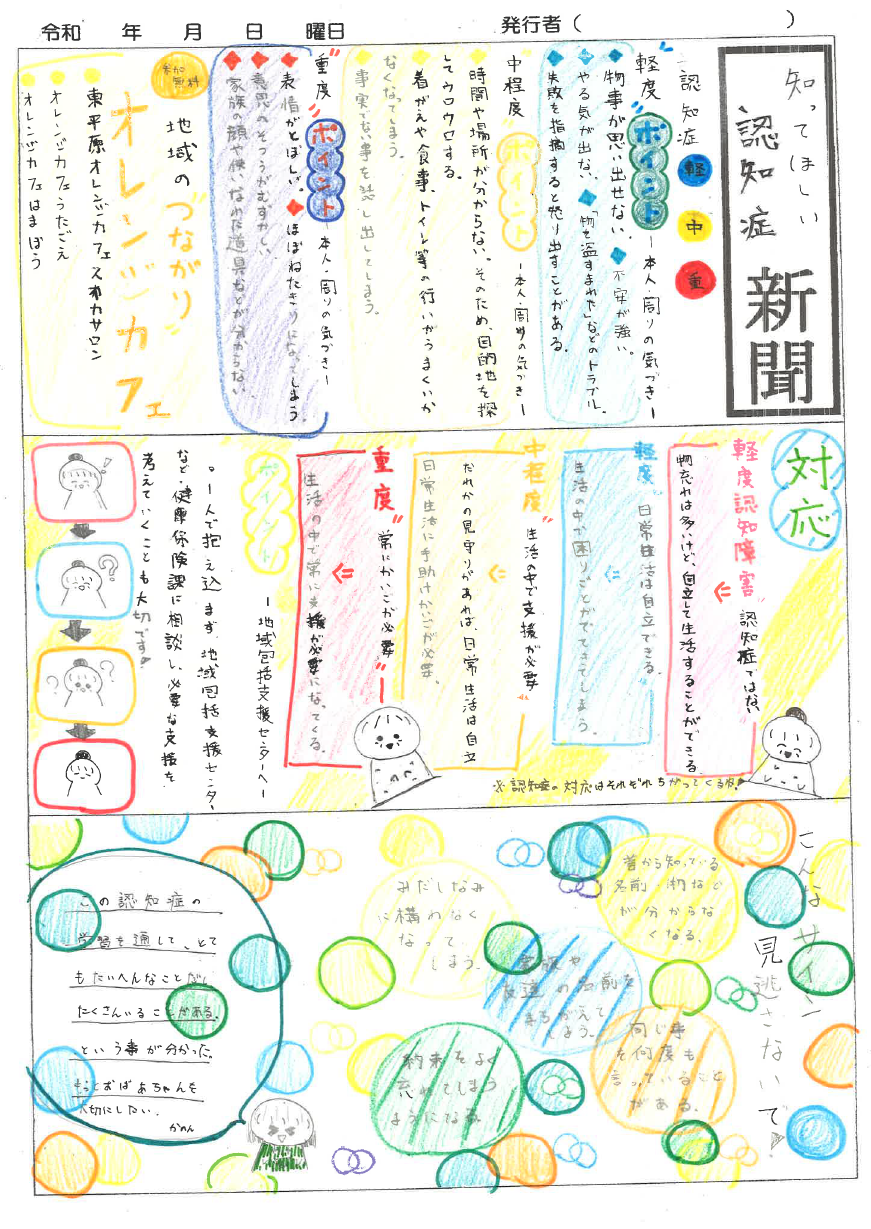 令和　年　月　日　曜日　発行者（　　　）
知ってほしい
認知症
新聞
認知症 軽 中 重
軽度 ポイント ー本人・周りの気づきー
◆物事が思い出せない。◆不安が強い。
◆やる気が出ない。◆「物を盗すまれた」などのトラブル。
◆失敗を指摘すると怒り出すことがある。
中程度 ポイント ー本人・周りの気づきー
◆時間や場所が分からない。そのため、目的地を探
してウロウロする。
◆着がえや食事、トイレ等の行いがうまくいか
なくなってしまう。
◆事実でない事を話し出してしまう。
重度 ポイント ー本人・周りの気づきー
◆表情がとぼしい。◆ほぼねたきりになってしまう。
◆意思のそつうがむずかしい。
◆家族の顔や使いなれた道具などが分からない。
参加無料
地域の"つながり"
オレンジカフェ
東平原オレンジカフェスオカサロン
オレンジカフェうたごえ
オレンジカフェはまぼう
対応
軽度認知障害"認知症ではない"
物忘れは多いけど、自立して生活することができる。
軽度"日常生活は自立できる。"
生活の中で困りごとがでてきてしまう。
中程度"生活の中で支援が必要"
だれかの見守りがあれば、日常生活は自立
日常生活に手助けかいごが必要。
重度"常にかいごが必要"
生活の中で常に支援が必要になってくる。
※認知症の対応はそれぞれちがってくるよ
ポイント ー地域包括支援センターへー
。一人で抱え込まず、地域包括支援センター
など・健康保険課に相談し、必要な支援を
考えていくことも大切です!
こんなサイン
見逃さないで
昔から知っている
名前・物など
が分からな
くなる。
みだしなみ
に構わなく
なって
しまう。
家族や
友達の名前を
まちがえて
しまう。
同じ事
を何度も
言っていること
がある。
約束をよく
忘れてしまう
ようになる
この認知症の
学習を通して、とて
もたいへんなことが
たくさんあることがある。
という事が分かった。
もっとおばあちゃんを
大切にしたい。
かのん